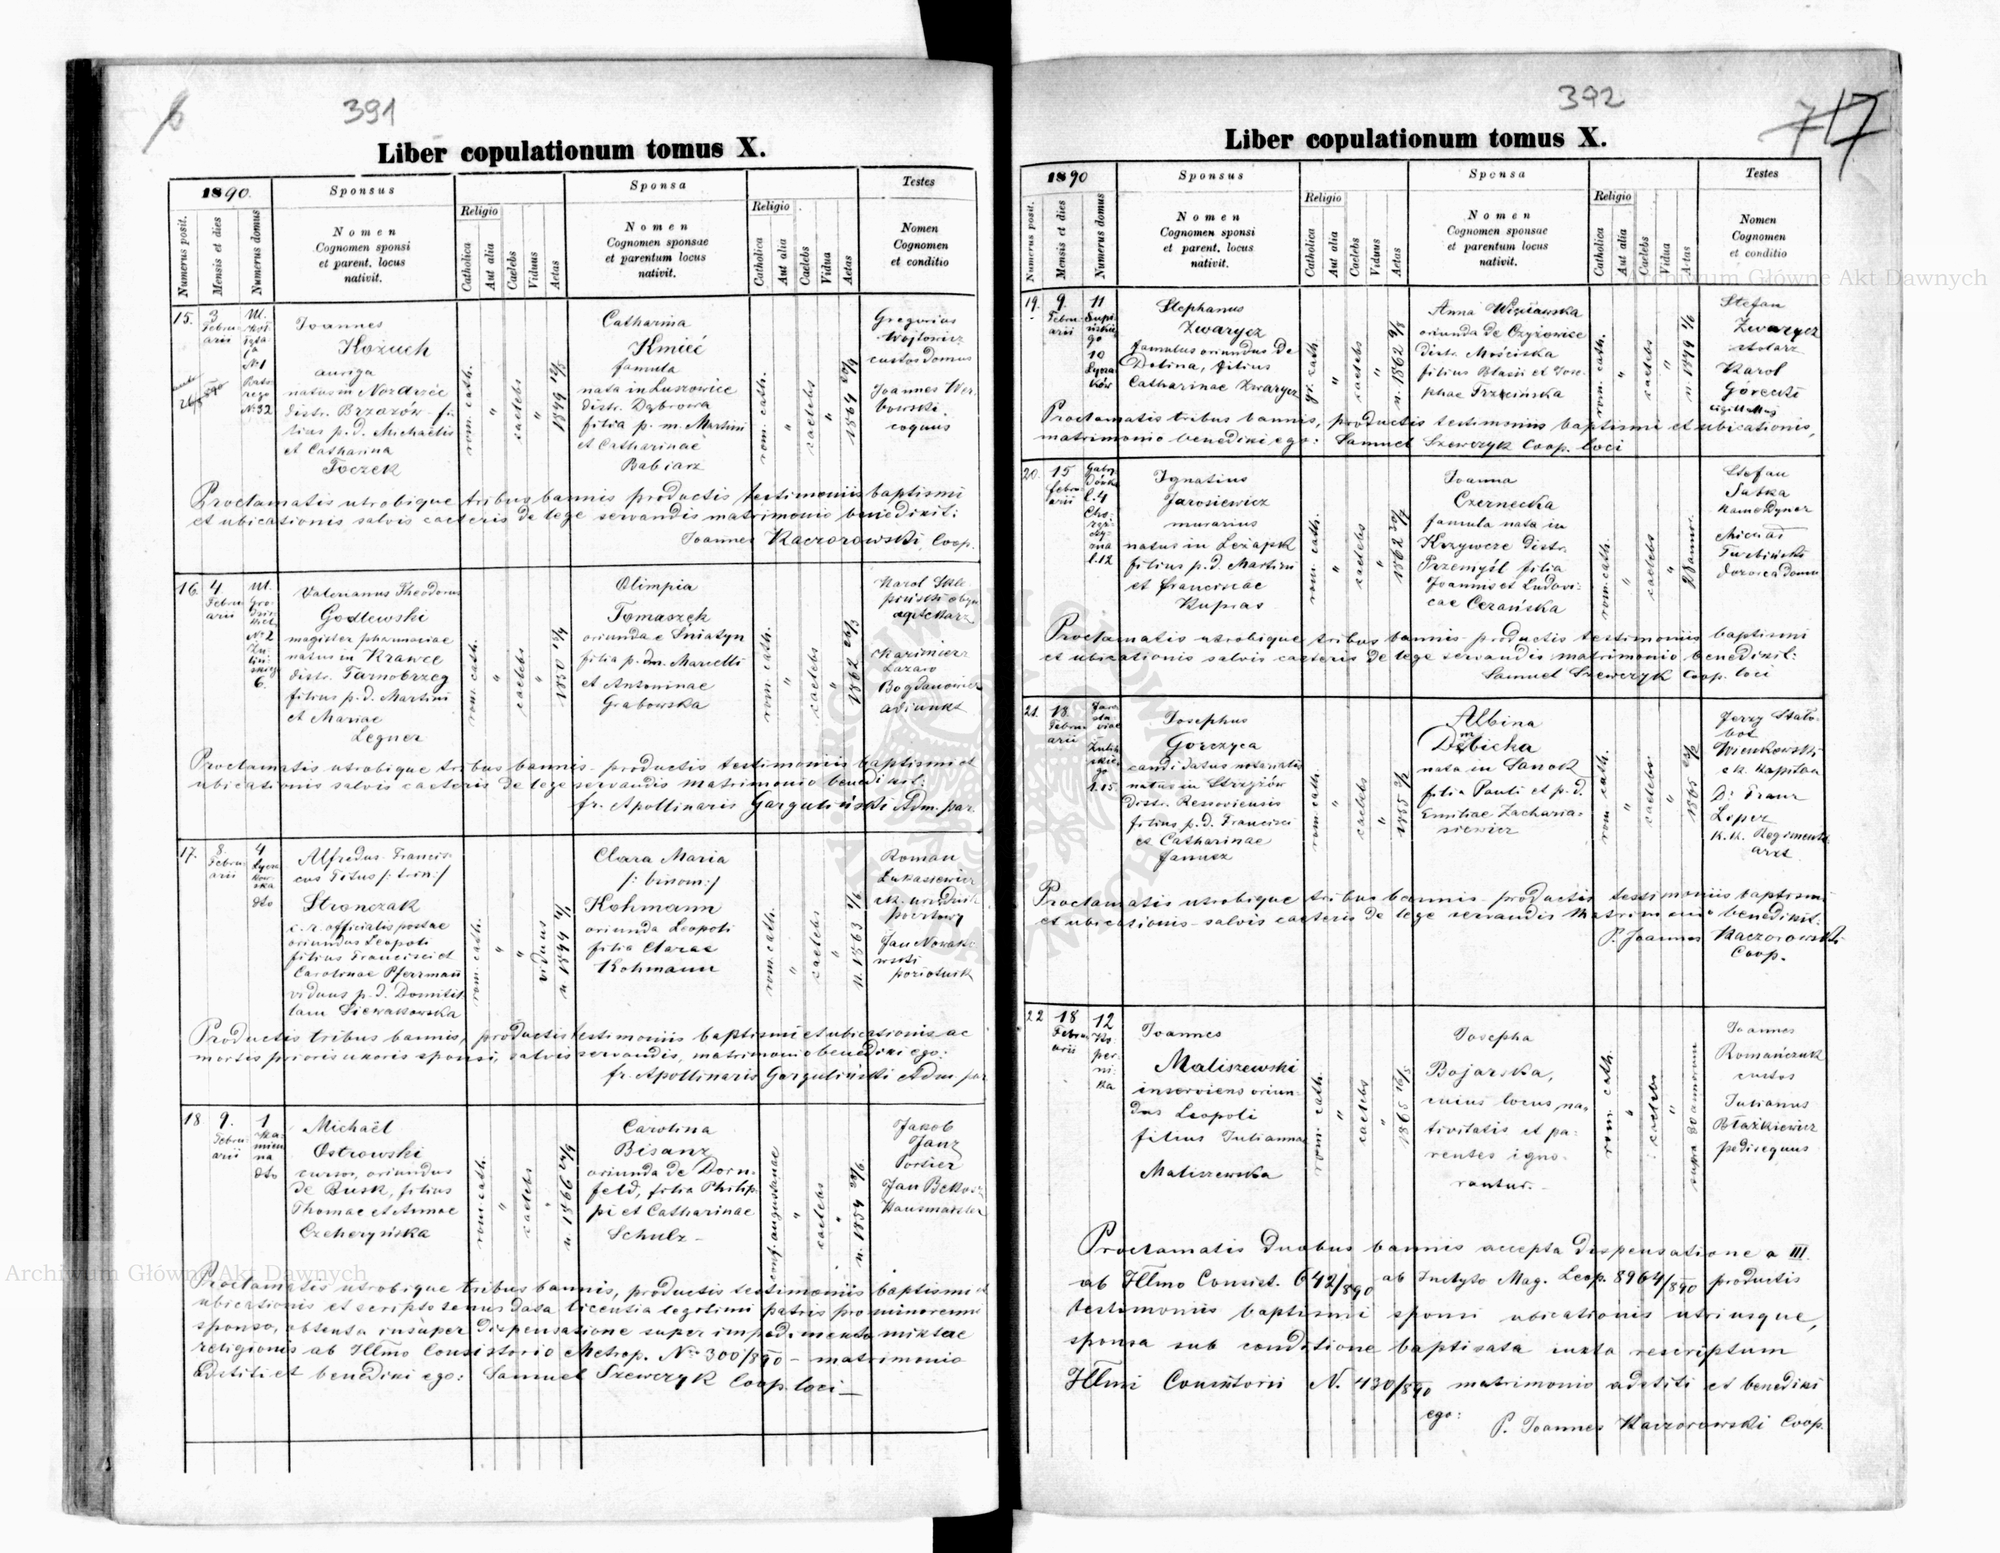 391
Liber copulationum tomus X.
1890.
Sponsus
Sponsa
Testes
Numerus posit.
Mensis et dies
Numerus domus
Nomen
Cognomen sponsi
et parent. locus
nativit.
Religio
Catholica
Aut alia
Caelebs
Viduus
Aetas
Nomen
Cognomen sponsae
et parentum locus
nativit.
Religio
Catholica
Aut alia
Caelebs
Vidua
Aetas
Nomen
Cognomen
et conditio
15.
3
Febru
arii
Joannes
Kożuch
auriga
natus in
distr. Brzozów fi-
lius p. d. Michaelis
et Catharina
Toczek
rom. cath.
"
caelebs
"
1849
Catharina
Kmieć
famula
nata in Luszowice
distr. Dąbrowa
filia p. m. Martini
et Catharinae
Babiarz
rom. cath.
"
caelebs
"
1864
Gregorius
Wojtowicz
custos domus
Joannes Wer
bowski
coquus
Proclamatis utrobique tribus bannis productis testimoniis baptismi
et ubicationis salvis caeteris de lege servandis matrimonio benedixit:
Joannes Kaczorowski, Coop.
16.
4
Febru
arii
Valerianus Theodorus
Godlewski
magister pharmaciae
natus in Krawce
distr. Tarnobrzeg
filius p. d. Martini
et Mariae
Legner
rom. cath.
"
caelebs
"
1850
Olimpia
Tomaszek
oriunda e Śniatyn
filia p. dm. Marcelli
et Antoninae
Grabowska
rom. cath.
"
caelebs
"
1862
Karol Skle
piński obyw
aptekarz
Kazimierz
Łazarz
Bogdanowicz
adjunkt
Proclamatis utrobique tribus bannis productis testimoniis baptismi et
ubicationis salvis caeteris de lege servandis matrimonio benedixit:
fr. Apollinaris Garguliński Adm. par.
17.
8.
Febru
arii
4
Łycza
kow
ska
dto
Alfredus Francis-
cus Titus /: trin :/
Stronczak
c. r. officialis postae
oriundus Leopoli
filius Francisci et
Carolinae Pferrmann
viduus p. d. Domitil
lam Siewakowska
rom. cath.
"
"
viduus
n. 1844
Clara Maria
/: binom :/
Kohmann
oriunda Leopoli
filia Clarae
Kohmann
rom. cath.
"
caelebs
"
n. 1863
Roman
Łukasiewicz
ck. urzednik
pocztowy
Jan Nowak-
owski
poziotnik
Productis tribus bannis, productis testimoniis baptismi et ubicationis ac
mortis prioris uxoris sponsi, salvis servandis, matrimonio benedixi ego:
fr. Apollinaris Garguliński Adm. par
18
9.
Febru
arii
1
Ka
mien
na
dto
Michaël
Ostrowski
cursor, oriundus
de Busk, filius
Thomae et Annae
Czeheryńska
rom. cath.
"
caelebs
"
n. 1866
Carolina
Bisanz
oriunda de Dorn-
feld, filia Philip
pi et Catharinae
Schulz
conf. augustanae
"
caelebs
"
n. 1854
Jakob
Janz
Portier
Jan Bekosz
Hausmeister
Proclamatis utrobique tribus bannis, productis testimoniis baptismi et
ubicationis et scripto tenus data licentia legitimi patris pro minorenni
sponso, obtenta insuper dispensatione super impedimento mixtae
religionis ab Illmo Consistorio Metrop. No 300/890 - matrimonio
adstiti et benedixi ego: Samuel Szewczyk Coop. loci
392
717
Liber copulationum tomus X.
1890
Sponsus
Sponsa
Testes
Numerus posit.
Mensis et dies
Numerus domus
Nomen
Cognomen sponsi
et parent. locus
nativit.
Religio
Catholica
Aut alia
Caelebs
Viduus
Aetas
Nomen
Cognomen sponsae
et parentum locus
nativit.
Religio
Catholica
Aut alia
Caelebs
Vidua
Aetas
Nomen
Cognomen
et conditio
19.
9.
Febru
arii
11
Supi
ńskie
go
10
Łycza
ków
Stephanus
Zwarycz
famulus oriundus de
Dolina, filius
Catharinae Zwarycz
gr. cath.
"
caelebs
"
n. 1862
Anna
oriunda de Czyżowice
distr. Mościska
filius Blasii et Jose-
phae Trzcińska
rom. cath.
"
caelebs
"
n. 1849
Stefan
Zwarycz
stolarz
Karol
Górecki
Proclamatis tribus bannis, productis testimoniis baptismi et ubicationis,
matrimonio benedixi ego: Samuel Szewczyk Coop. loci
20.
15
febru
arii
l. 4
l. 12
Ignatius
Jarosiewicz
murarius
natus in Leżajsk
filius p. d. Martini
et Franciscae
Kupras
rom. cath.
"
caelebs
"
1862
Joanna
Czernecka
famula nata in
Krzywcze distr.
Przemyśl filia
Joannis et Ludovi-
cae Cezańska
rom. cath.
"
caelebs
"
28 annor.
Stefan
Sabka
kamerdyner
Michał
Turbiński
dozorca domu
Proclamatis utrobique tribus bannis productis testimoniis baptismi
et ubicationis salvis caeteris de lege servandis matrimonio benedixit:
Samuel Szewczyk Coop. loci
21.
18.
Febru
arii
l. 15.
Josephus
Gorczyca
candidatus notariatus
natus in Strzyżów
distr. Ressoviensis
filius p. d. Francisci
et Catharinae
Janusz
rom. cath.
"
caelebs
"
1855
Albina
Dębicka
nata in Sanok
filia Pauli et p. d.
Emiliae Zacharia-
siewicz
rom. cath.
"
caelebs
"
1865
Jerzy Biało-
bot
Wienkowski
ck. kapitan
Dr Franz
Lipez
K. k. Regiments
arzt
Proclamatis utrobique tribus bannis productis testimoniis baptismi
et ubicationis salvis caeteris de lege servandis matrimonio benedixit.
P. Joannes Kaczorowski
Coop.
22
18
Febru
arii
12
Ko
per
ni-
ka
Joannes
Maliszewski
inserviens oriun-
dus Leopoli
filius Julianna
Maliszewska
rom. cath.
"
caelebs
"
1865 16/5
Josepha
Bojarska,
cuius locus na-
tivitatis et pa-
rentes igno-
rantur.
rom. cath.
"
caelebs
"
supra 30 annorum
Joannes
Romańczuk
custos
Julianus
Błażkiewicz
pedisequus
Proclamatis duobus bannis accepta dispensatione a III.
ab Illmo Consist. 642/890 ab Inclyto Mag. Leop. 8964/890 productis
testimoniis baptismi sponsi ubicationis utriusque,
sponsa sub conditione baptisata iuxta rescriptum
Illmi Consistorii N. 430/890 matrimonio adstiti et benedixi
ego:
P. Joannes Kaczorowski Coop.
Archiwum Główne Akt Dawnych
Archiwum Główne Akt Dawnych